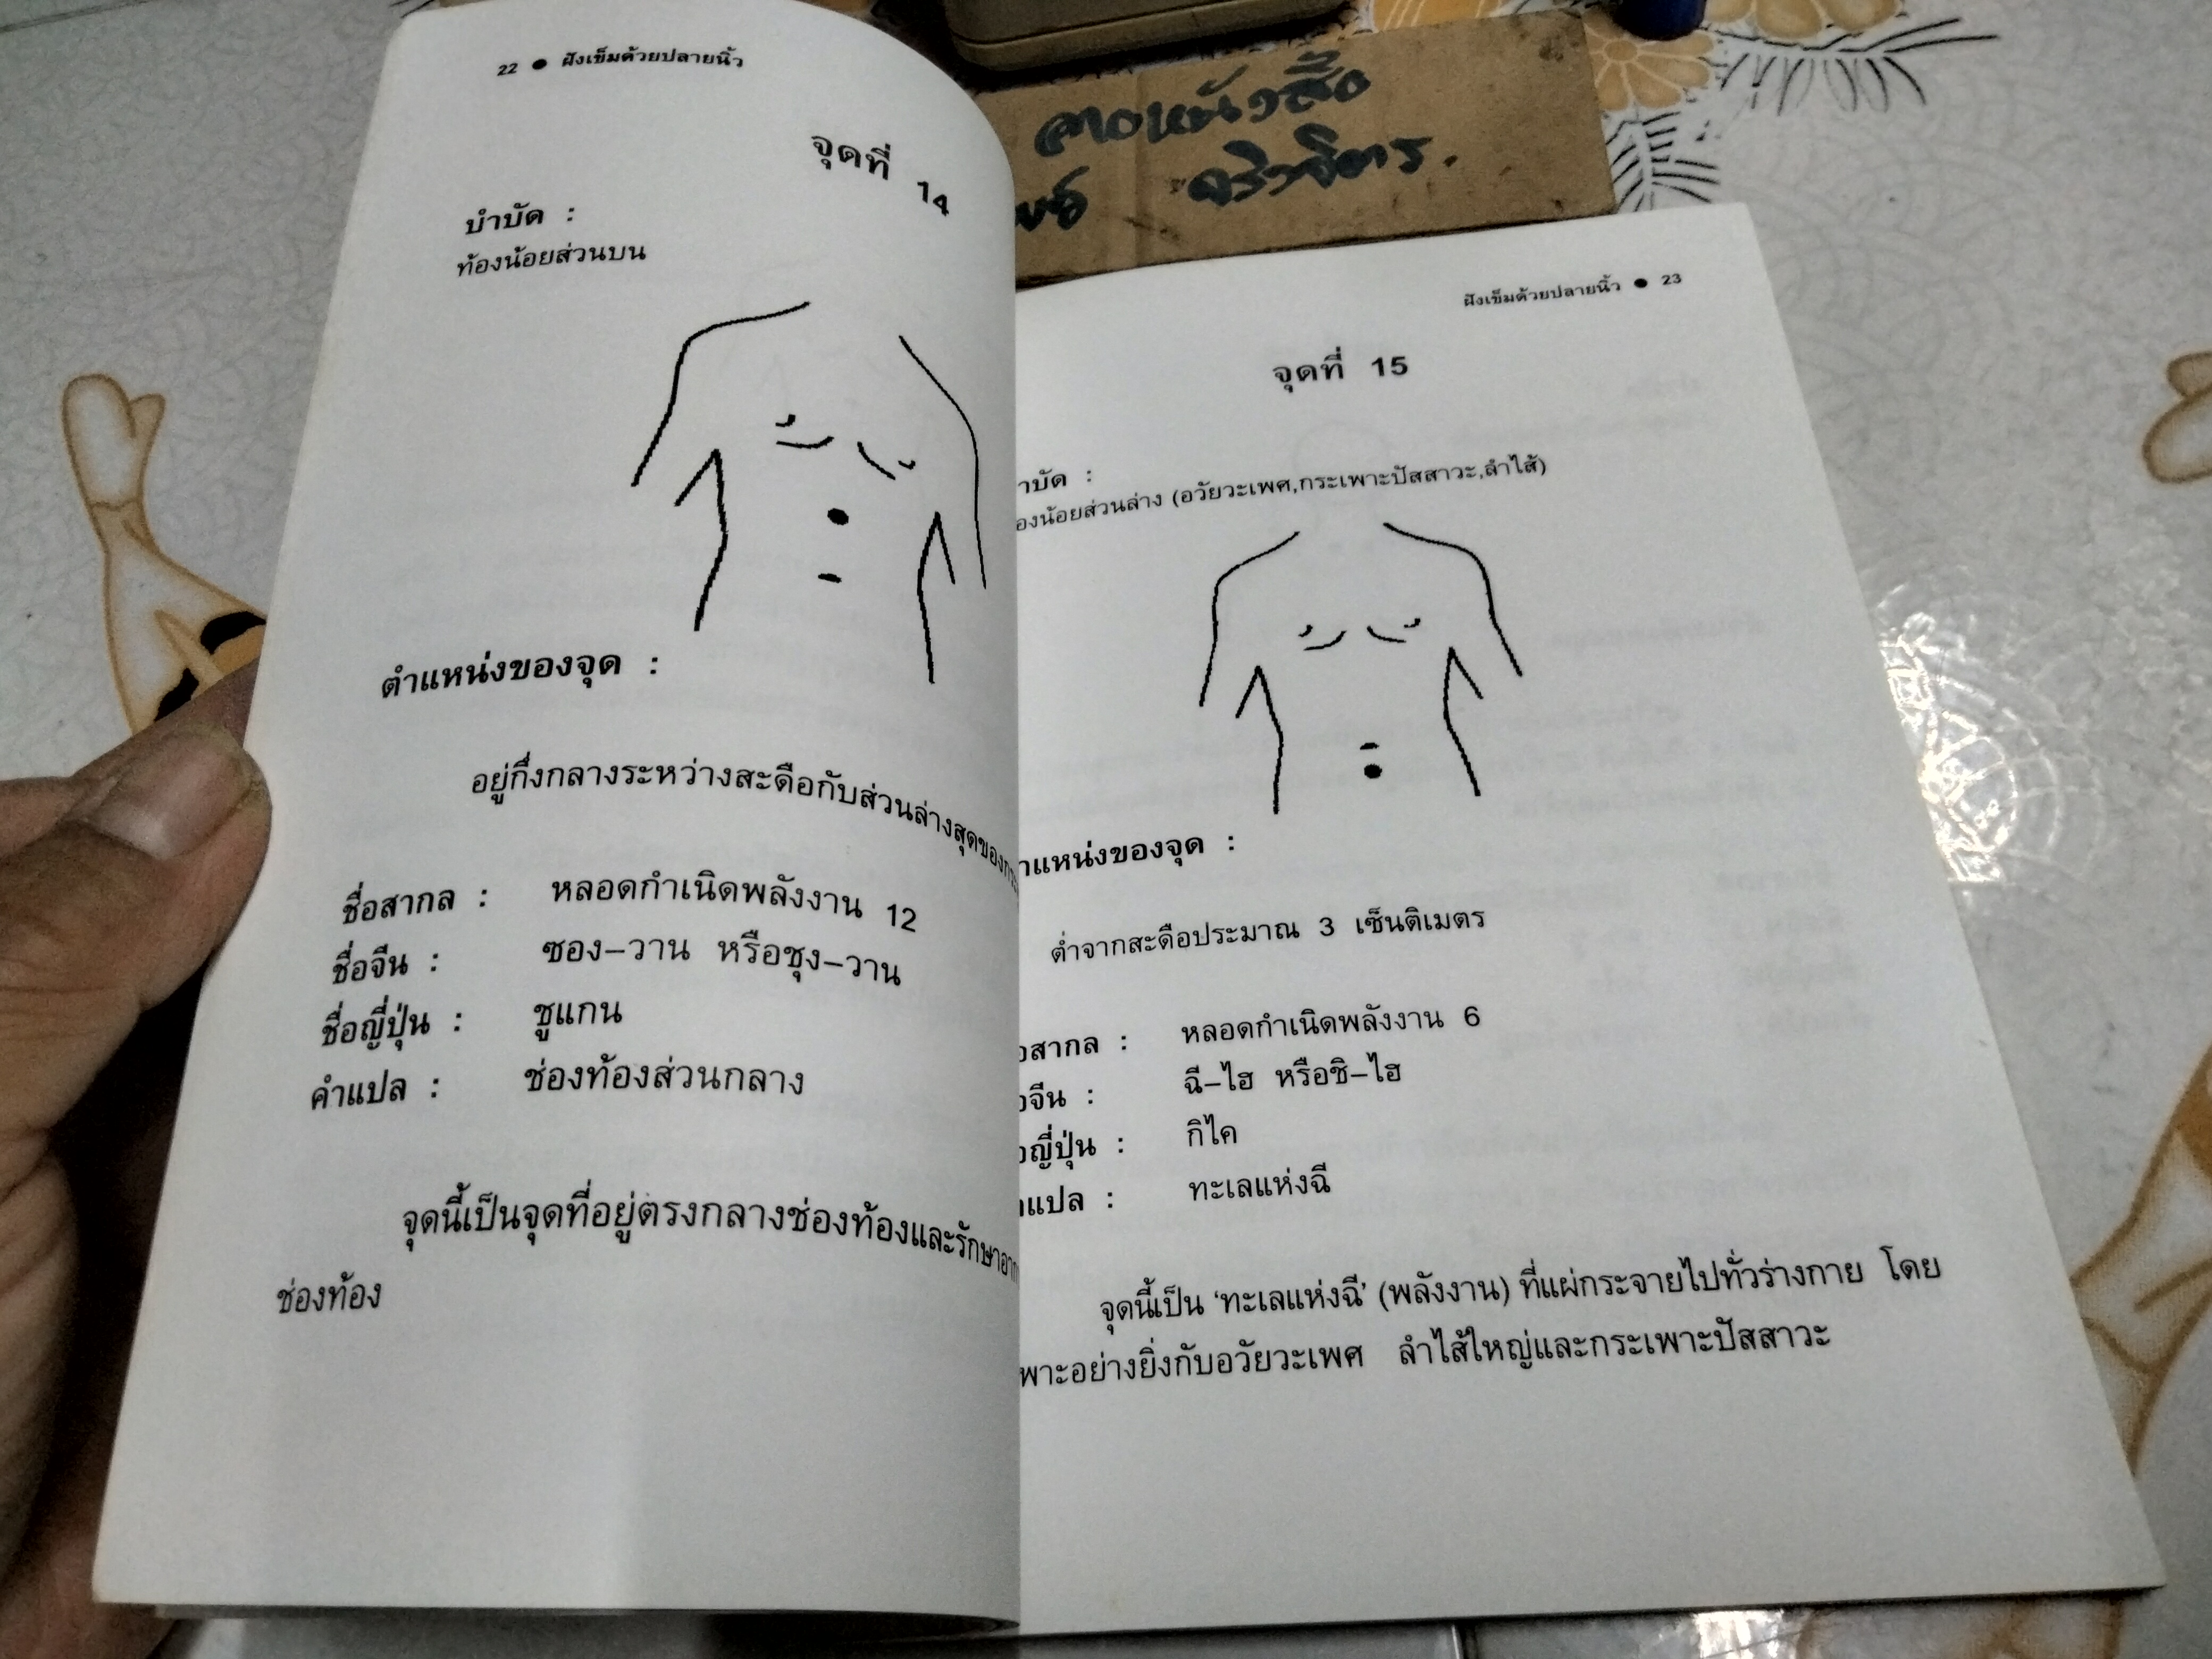 22 ● ฝังเข็มด้วยปลายนิ้ว
จุดที่ 14
บำบัด :
ท้องน้อยส่วนบน
ตำแหน่งของจุด :
อยู่กึ่งกลางระหว่างสะดือกับส่วนล่างสุดของ
ชื่อสากล : หลอดกำเนิดพลังงาน 12
ชื่อจีน : ซอง–วาน หรือชุง–วาน
ชื่อญี่ปุ่น : ชูแกน
คำแปล : ช่องท้องส่วนกลาง
จุดนี้เป็นจุดที่อยู่ตรงกลางช่องท้องและรักษา
ช่องท้อง
ฝังเข็มด้วยปลายนิ้ว ● 23
จุดที่ 15
าบัด :
องน้อยส่วนล่าง (อวัยวะเพศ,กระเพาะปัสสาวะ,ลำไส้)
าแหน่งของจุด :
ต่ำจากสะดือประมาณ 3 เซ็นติเมตร
อสากล : หลอดกำเนิดพลังงาน 6
อจีน : ฉี–ไฮ หรือชิ–ไฮ
อญี่ปุ่น : กิไค
าแปล : ทะเลแห่งฉี
จุดนี้เป็น ‘ทะเลแห่งฉี’ (พลังงาน) ที่แผ่กระจายไปทั่วร่างกาย โดย
พาะอย่างยิ่งกับอวัยวะเพศ ลำไส้ใหญ่และกระเพาะปัสสาวะ